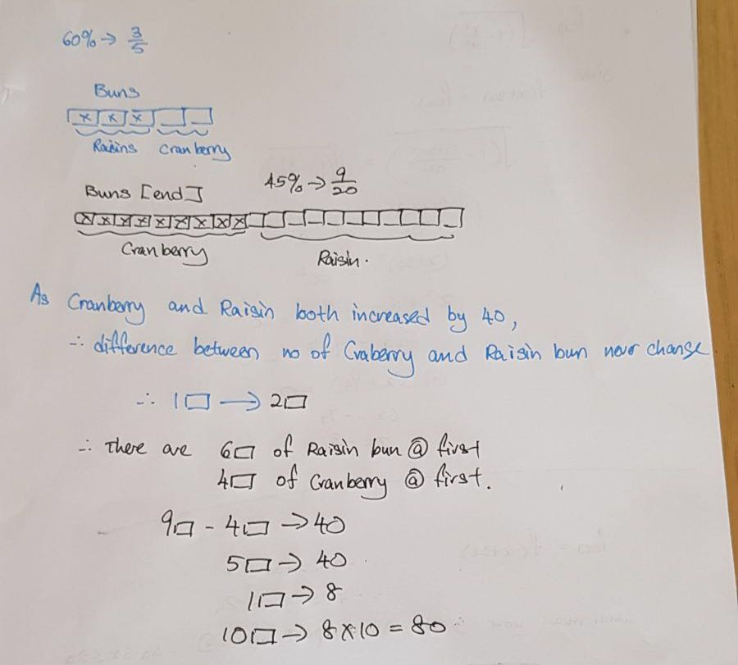 60% → 3/5
Buns
x x x
Raisins Cranberry
45% → 9/20
Buns [end]
x x x x x x x x x
Cranberry Raisin.
As Cranberry and Raisin both increased by 40,
∴ difference between no of Craberry and Raisin bun never change
∴ 1□ → 2□
∴ There are 6□ of Raisin bun @ first
4□ of Cranberry @ first.
9□ - 4□ → 40
5□ → 40
1□ → 8
10□ → 8×10 = 80